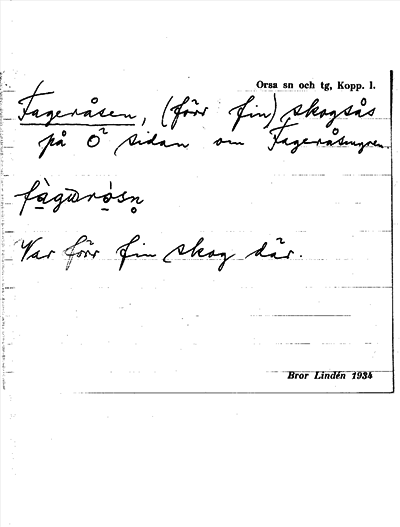 Orsa sn och tg, Kopp. l.
Fageråsen, (förr fin) skogsås
på Ö sidan om Fageråsmyren.
Var förr fin skog där.
Bror Lindén 1934